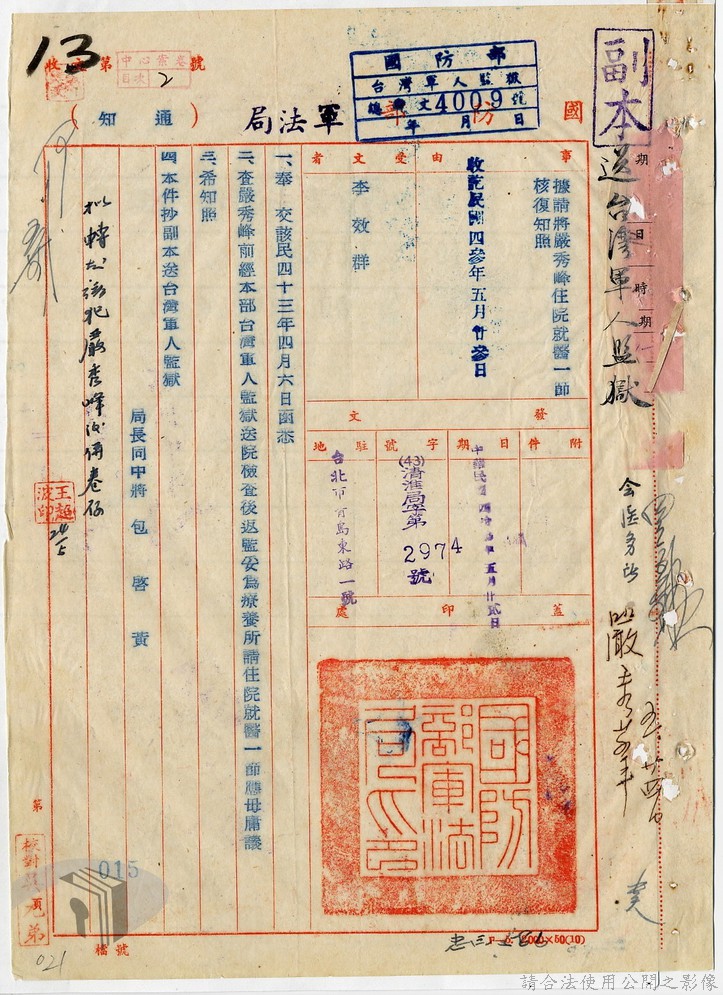 副本
送台灣軍人監獄
國防部
台灣軍人監獄
總收文4009號
年 月 日
國防部軍法局
(通知)
13
收文第 號
中心當卷
目次 2
事由
據請將嚴秀峰住院就醫一節
核復知照
收訖民國四參年五月廿參日
受文者
李效群
發文
附件
日期
中華民國四十三年五月廿貳日
字號
(43)清淮局字第
2974
號
駐地
台北市青島東路一號
蓋印處
國防部軍法局印
一、奉 交該民四十三年四月六日函悉
二、查嚴秀峰前經本部台灣軍人監獄送院檢查後返監妥為療養所請住院就醫一節應毋庸議
三、希知照
四、本件抄副本送台灣軍人監獄
局長同中將 包 啓 黃
擬轉知該犯嚴秀峰後併卷存
王超波印
24/5
期
日
時
期
會醫務所
嚴秀峰
第
015
檔號
021
請合法使用公開之影像